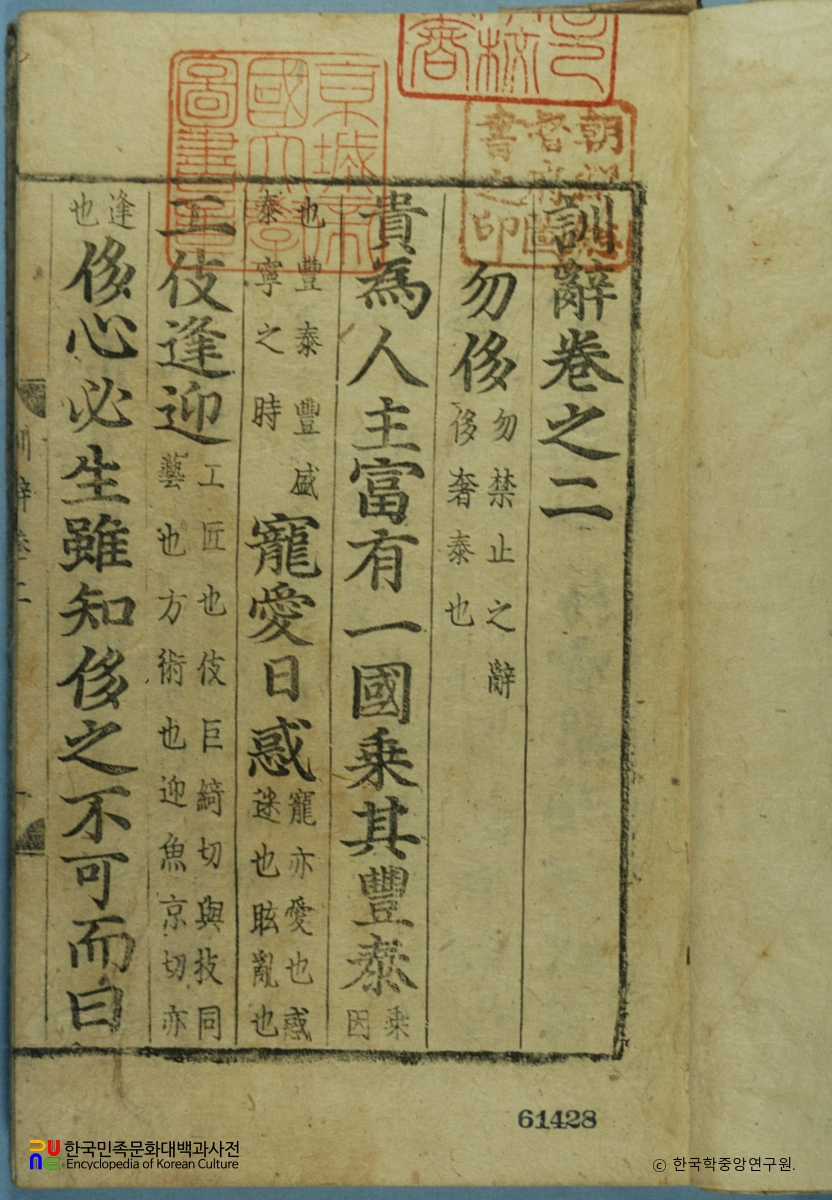 訓辭卷之二
勿侈勿禁止之辭侈奢泰也
貴為人主富有一國乗其豐泰乗因
也豐泰豐盛泰寧之時寵愛日惑寵亦愛也惑迷也眩亂也
工伎逢迎工匠也伎巨綺切與技同藝也方術也迎魚京切亦
逢也侈心必生雖知侈之不可而曰
朝鮮總督府圖書之印
京城帝國大學圖書章
61428
한국민족문화대백과사전
Encyclopedia of Korean Culture
ⓒ 한국학중앙연구원.